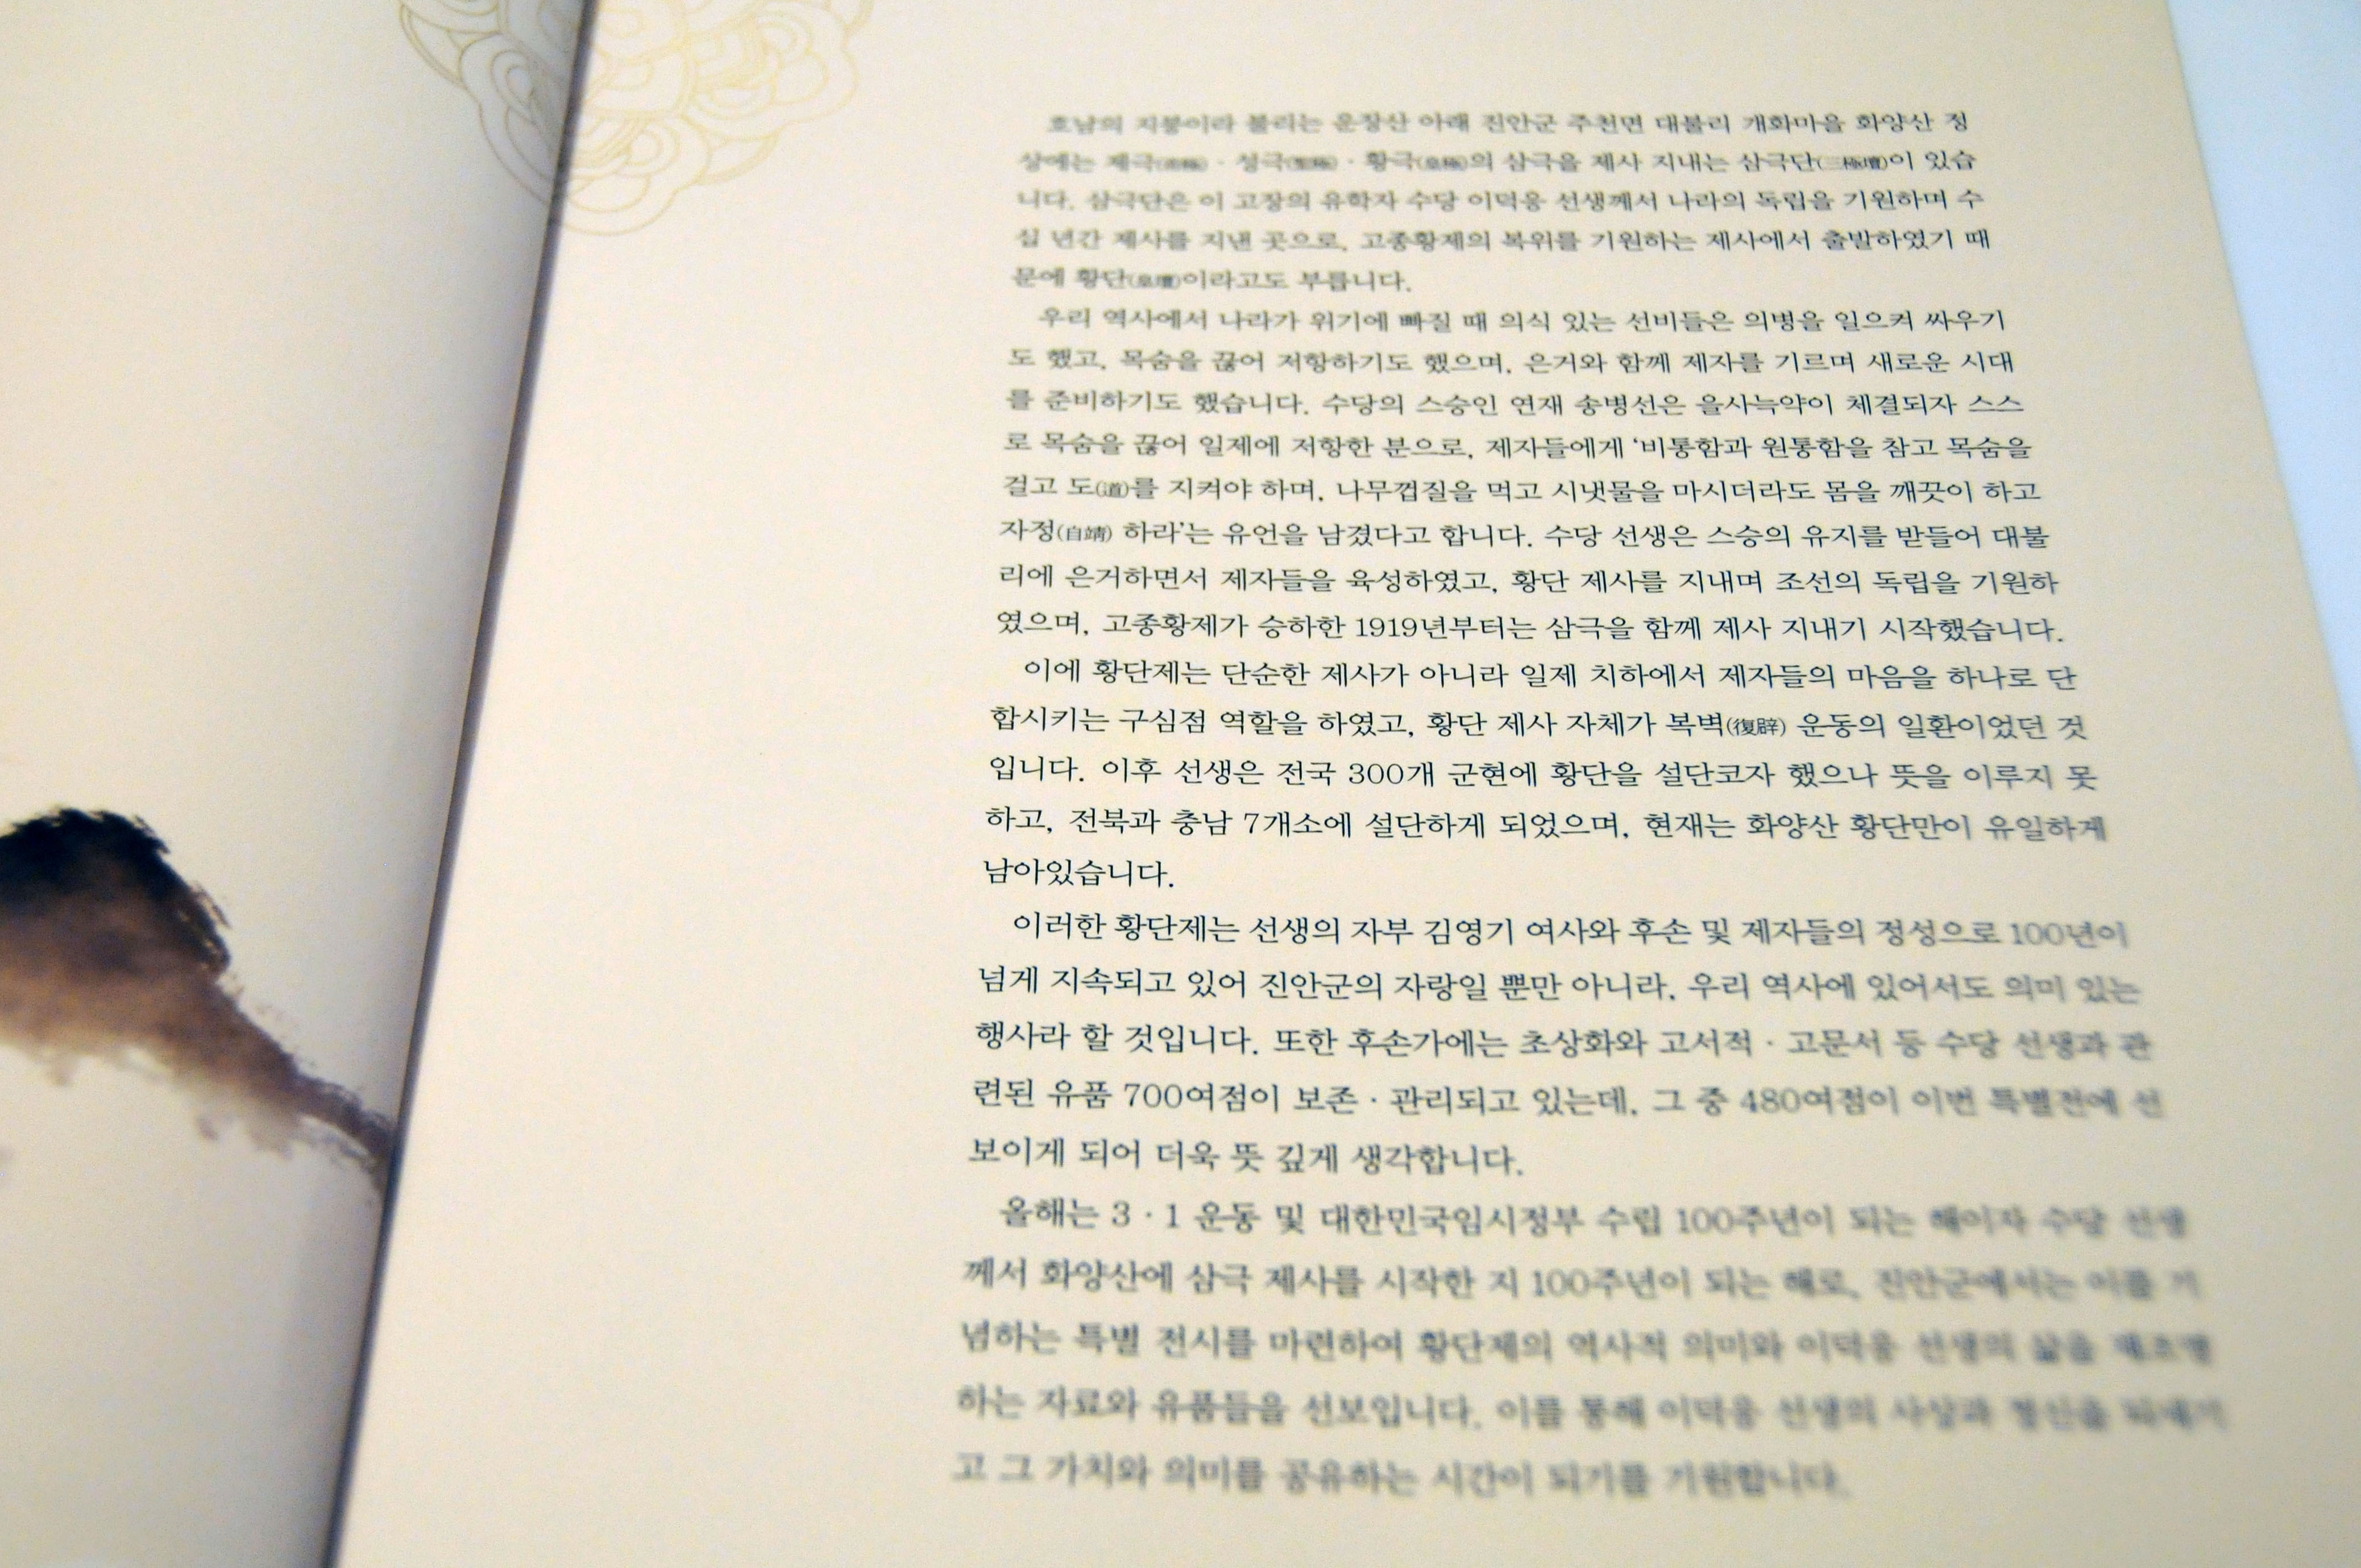 호남의 지붕이라 불리는 운장산 아래 진안군 주천면 대불리 개화마을 화양산 정
상에는 제극 · 성극 · 황극의 삼극을 제사 지내는 삼극단(三極壇)이 있습
니다. 삼극단은 이 고장의 유학자 수당 이덕응 선생께서 나라의 독립을 기원하며 수
십 년간 제사를 지낸 곳으로, 고종황제의 복위를 기원하는 제사에서 출발하였기 때
문에 황단(皇壇)이라고도 부릅니다.
우리 역사에서 나라가 위기에 빠질 때 의식 있는 선비들은 의병을 일으켜 싸우기
도 했고, 목숨을 끊어 저항하기도 했으며, 은거와 함께 제자를 기르며 새로운 시대
를 준비하기도 했습니다. 수당의 스승인 연재 송병선은 을사늑약이 체결되자 스스
로 목숨을 끊어 일제에 저항한 분으로, 제자들에게 ‘비통함과 원통함을 참고 목숨을
걸고 도(道)를 지켜야 하며, 나무껍질을 먹고 시냇물을 마시더라도 몸을 깨끗이 하고
자정(自靖) 하라’는 유언을 남겼다고 합니다. 수당 선생은 스승의 유지를 받들어 대불
리에 은거하면서 제자들을 육성하였고, 황단 제사를 지내며 조선의 독립을 기원하
였으며, 고종황제가 승하한 1919년부터는 삼극을 함께 제사 지내기 시작했습니다.
이에 황단제는 단순한 제사가 아니라 일제 치하에서 제자들의 마음을 하나로 단
합시키는 구심점 역할을 하였고, 황단 제사 자체가 복벽(復辟) 운동의 일환이었던 것
입니다. 이후 선생은 전국 300개 군현에 황단을 설단코자 했으나 뜻을 이루지 못
하고, 전북과 충남 7개소에 설단하게 되었으며, 현재는 화양산 황단만이 유일하게
남아있습니다.
이러한 황단제는 선생의 자부 김영기 여사와 후손 및 제자들의 정성으로 100년이
넘게 지속되고 있어 진안군의 자랑일 뿐만 아니라, 우리 역사에 있어서도 의미 있는
행사라 할 것입니다. 또한 후손가에는 초상화와 고서적 · 고문서 등 수당 선생과 관
련된 유품 700여점이 보존 · 관리되고 있는데, 그 중 480여점이 이번 특별전에 선
보이게 되어 더욱 뜻 깊게 생각합니다.
올해는 3 · 1 운동 및 대한민국임시정부 수립 100주년이 되는 해이자 수당 선생
께서 화양산에 삼극 제사를 시작한 지 100주년이 되는 해로, 진안군에서는 이를 기
념하는 특별 전시를 마련하여 황단제의 역사적 의미와 이덕응 선생의 삶을 재조명
하는 자료와 유품들을 선보입니다. 이를 통해 이덕응 선생의 사상과 정신을 되새기
고 그 가치와 의미를 공유하는 시간이 되기를 기원합니다.